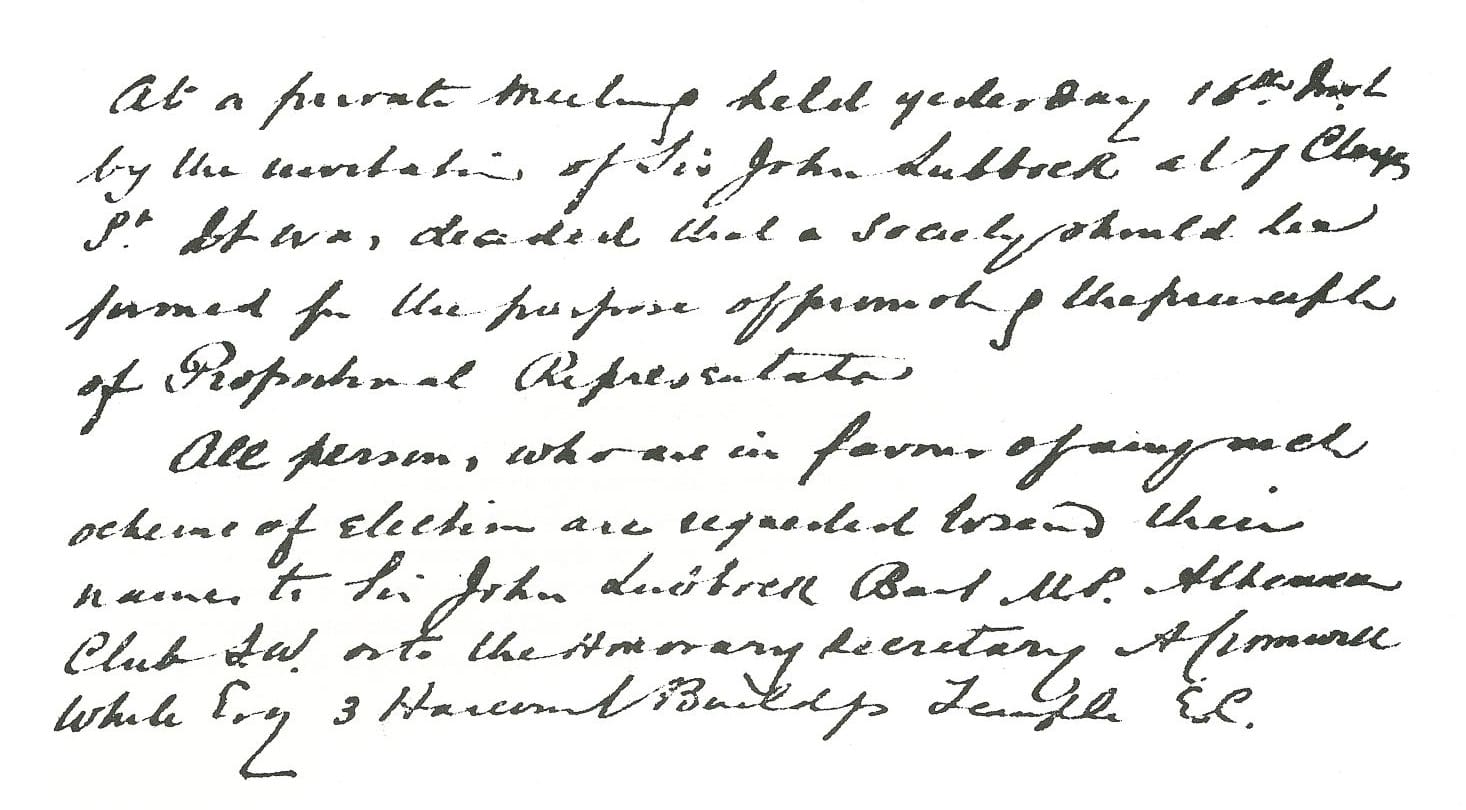 At a private meeting held yesterday 16th Inst
by the invitation of Sir John Lubbock at 7 Clarges
St. It was decided that a society should be
formed for the purpose of promoting the principle
of Proportional Representation
All persons who are in favour of any such
scheme of election are requested to send their
names to Sir John Lubbock Bart M.P. Athenaeum
Club S.W. or to the Honorary Secretary A Cromwell
White Esq 3 Harcourt Buildgs Temple E.C.